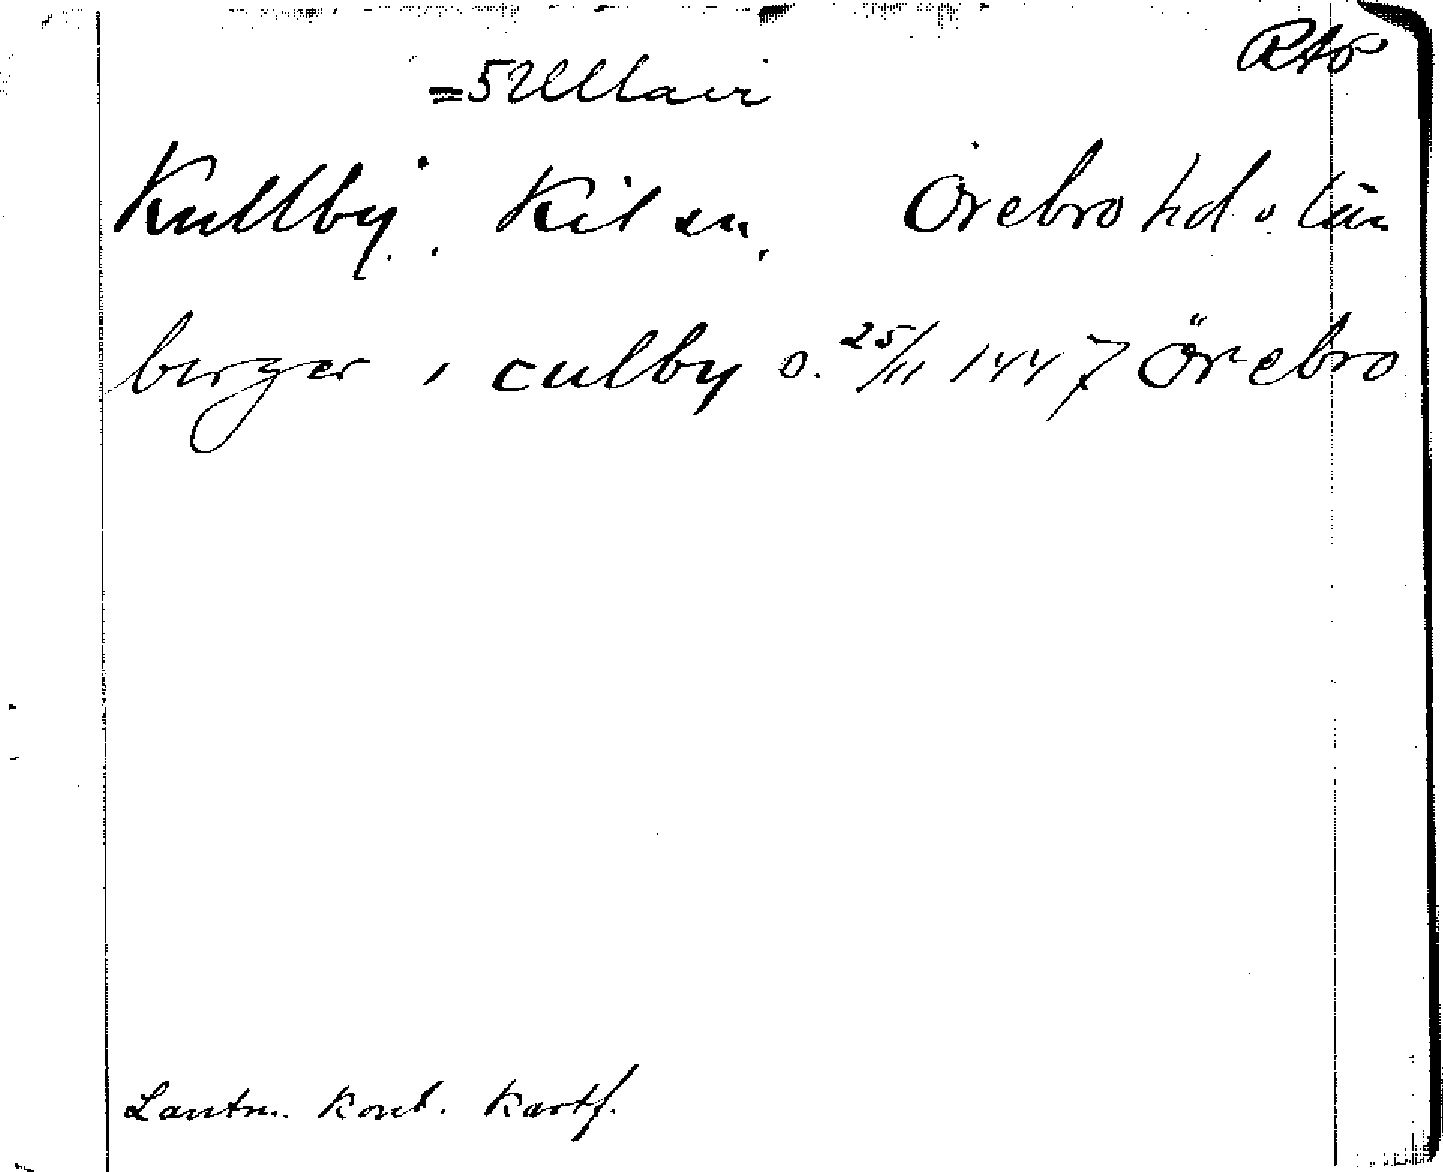 Kullby. Kil sn. Örebro hd o län
berger i culby o. 25/11 1447 Örebro
Lantm. Kont. Kartf.